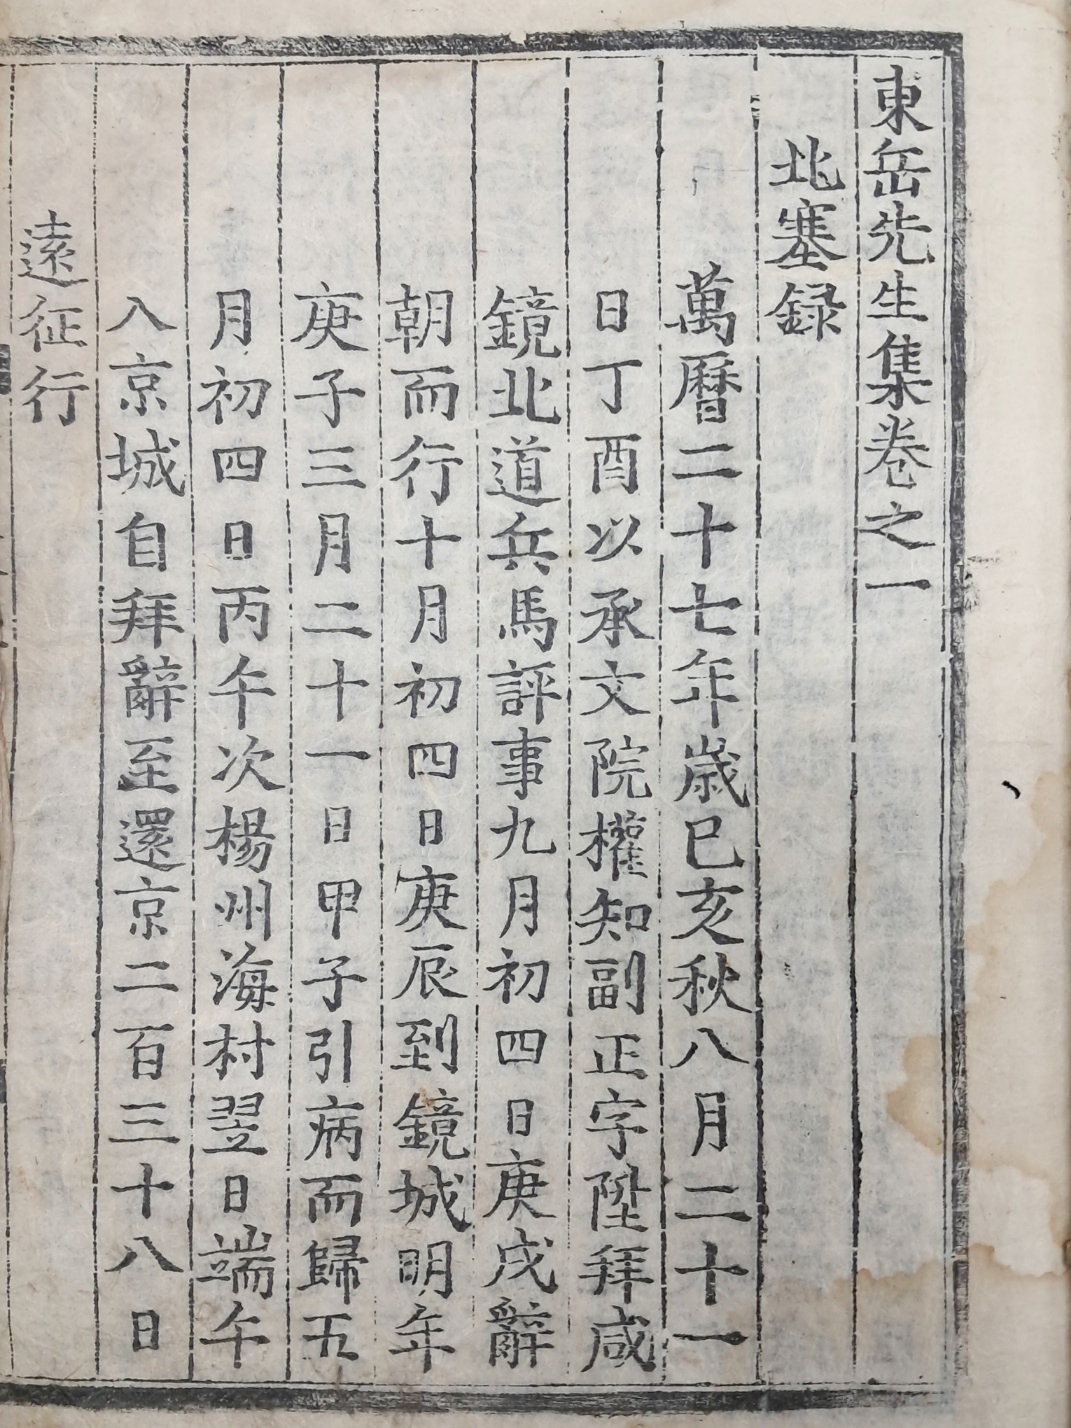 東岳先生集卷之一
北塞録
萬曆二十七年歲己亥秋八月二十一
日丁酉以承文院權知副正字陞拜咸
鏡北道兵馬評事九月初四日庚戌辭
朝而行十月初四日庚辰到鏡城明年
庚子三月二十一日甲子引病而歸五
月初四日丙午次楊州海村翌日端午
入京城自拜辭至還京二百三十八日
遠征行